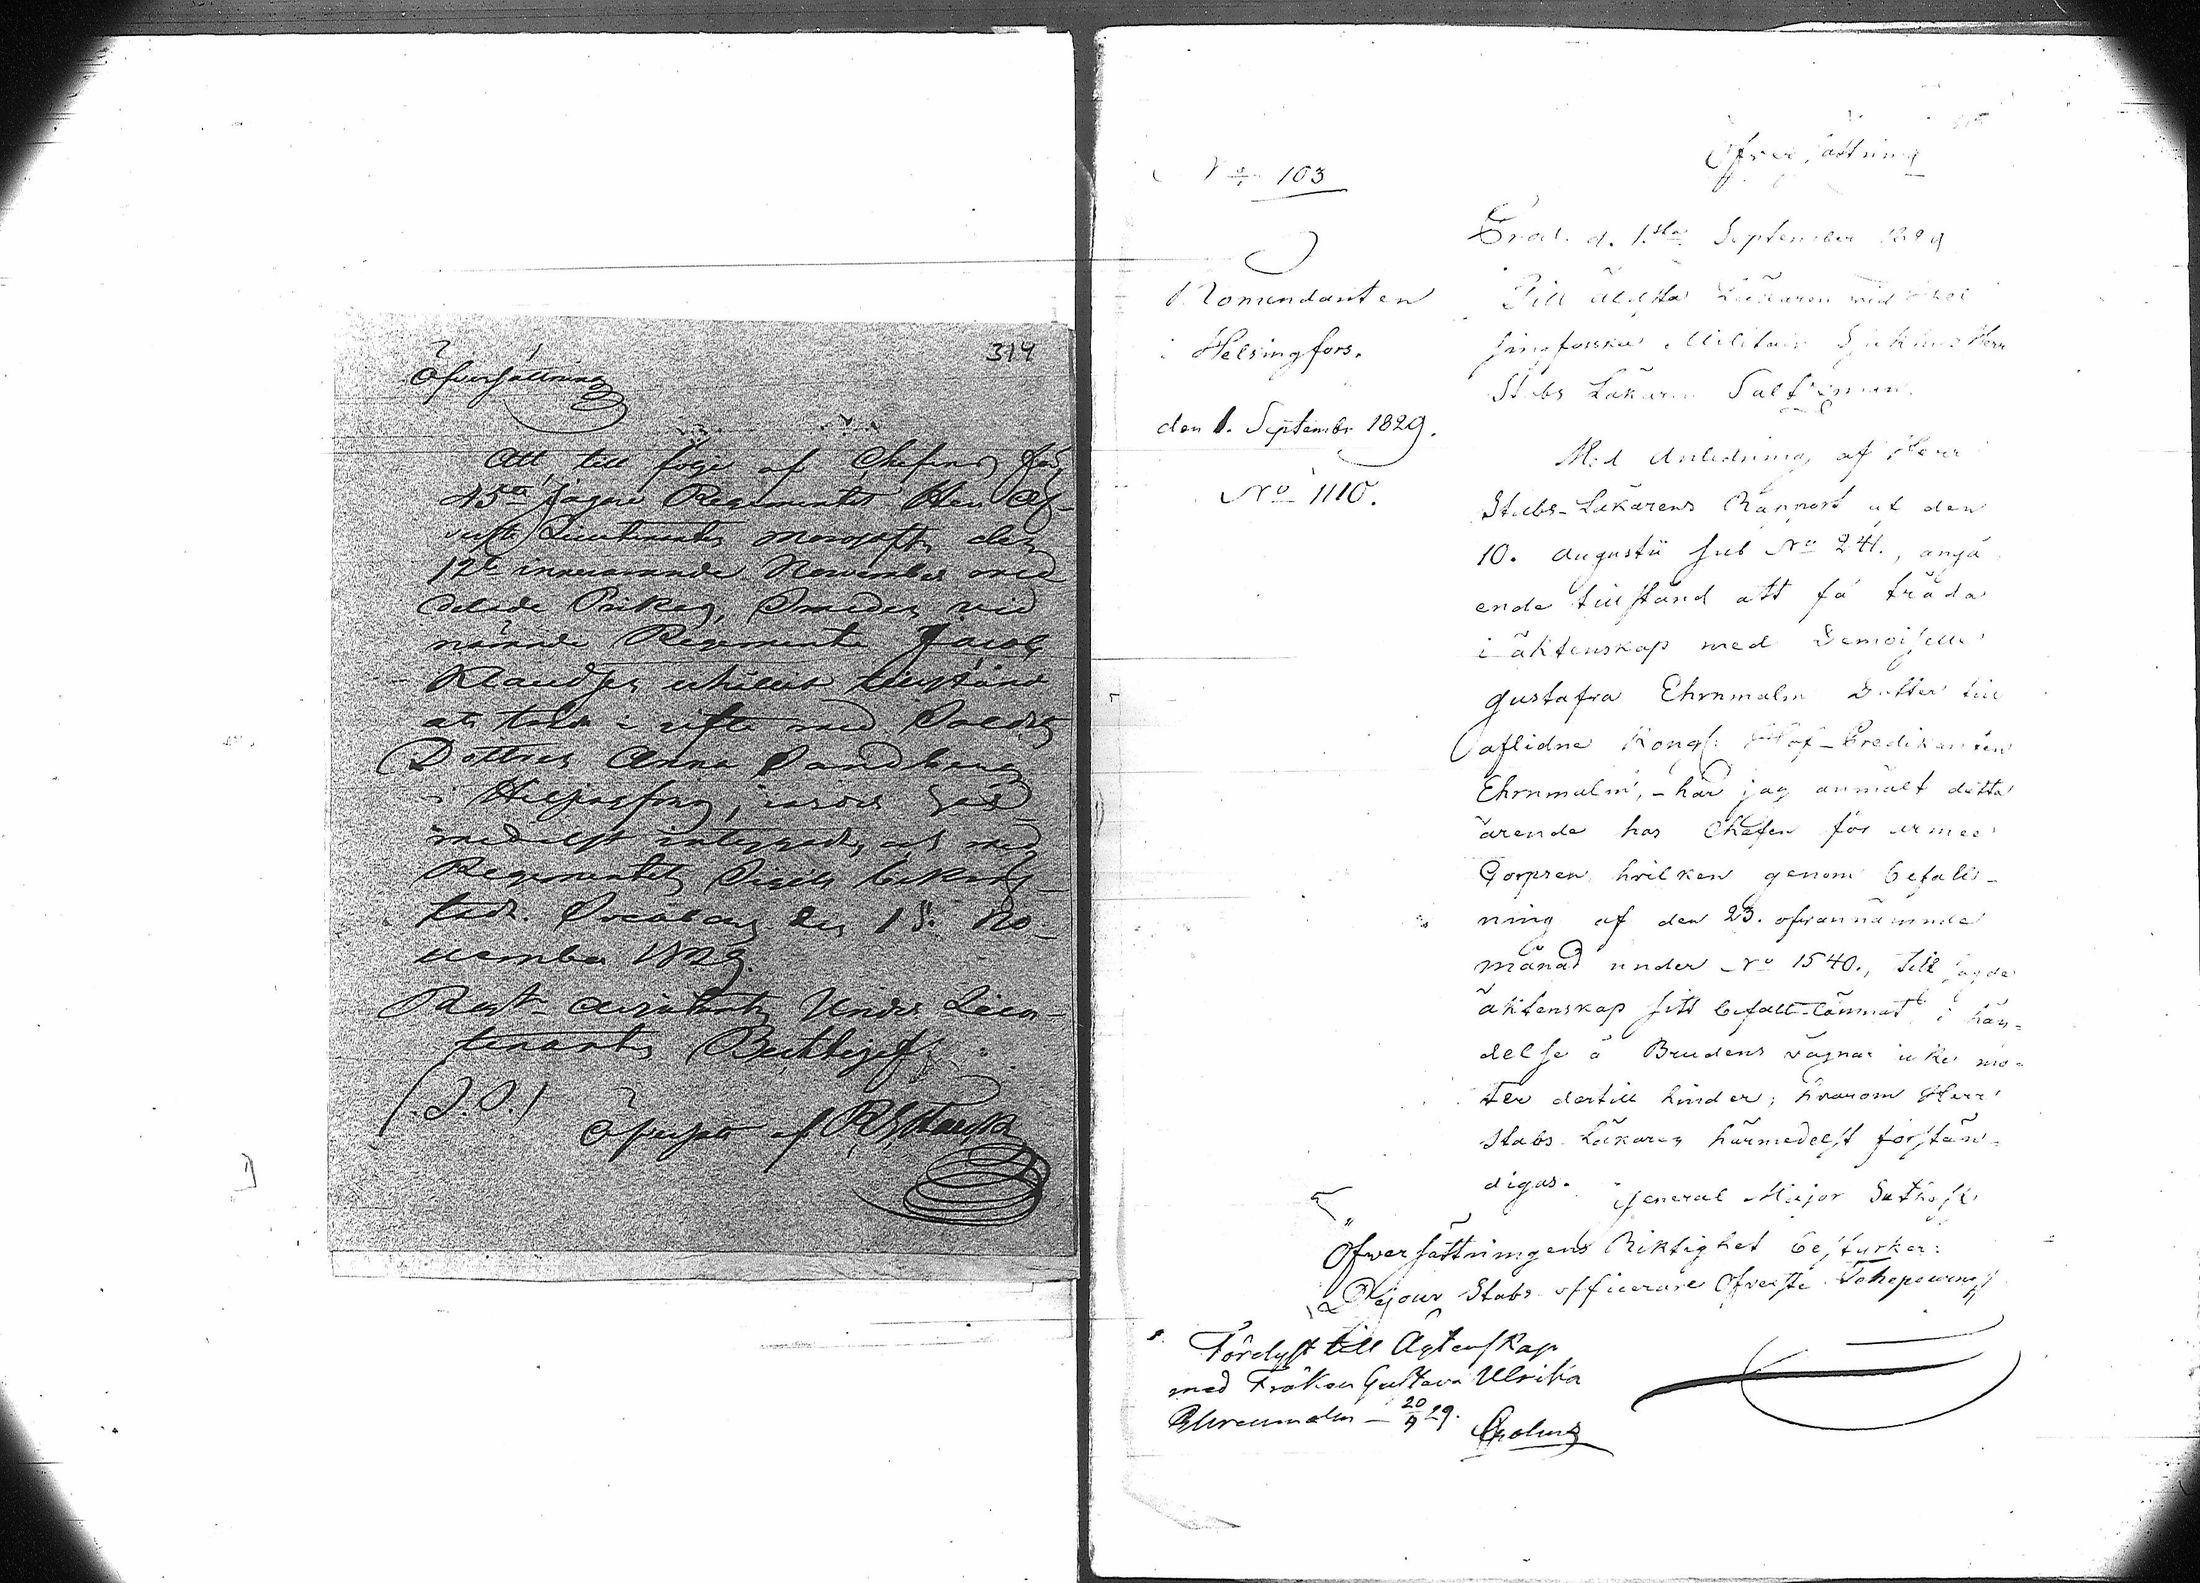 314
Öfversättning
Att till följe af Chefens för
45te Jägare Regementet Herr Öf-
verste Lieutenants Morosoffs den
12te innevarande November med
delade Prikas, Smeden vid
nämnde Regemente Jacob
erhållit tillstånd
att träda i gifte med Soldats
Dottren Anna Sandberg
i Helsingfors, varder
medelst intygadt, och med
Regementets Sigill bekräf-
tadt. Sveaborg den 15. No-
vember 1829.
Regts Adjutanten Under Lieu-
tenanten
(L.S.)
Öfversatt af
Öfversättning
No 103
Komendanten
i Helsingfors.
den 1. September 1829.
No 1110.
Prod. d. 1sta September 1829
Till äldsta Läkaren vid Hel
singforska Militair Sjukhus Herr
Stabs Läkaren
Med Anledning af Herr
Stabs-Läkarens Rapport af den
10. Augustii sub No 241., angå
ende tillstånd att få träda
i äktenskap med Demoiselle
Gustafva Ehrnmalm Dotter till
aflidne Kongl: Hof-Predikanten
Ehrnmalm, - har jag anmält detta
ärende hos Chefen för armee
Corpsen hvilken genom befall-
ning af den 23. ofvannämnde
månad under No 1540., till sagde
äktenskap sitt bifall lämnat, i hän-
delse å Brudens vägnar icke mö-
ter dertill hinder; hvarom Herr
Stabs Läkaren härmedelst förstän-
digas.
General Major
Öfversättningens Riktighet bestyrker:
Dejour Stabs officerare Öfverste
Fördyst till Ägtenskap
med Fröken Gustava Ulrika
Ehrenmalm - 20/9 29.